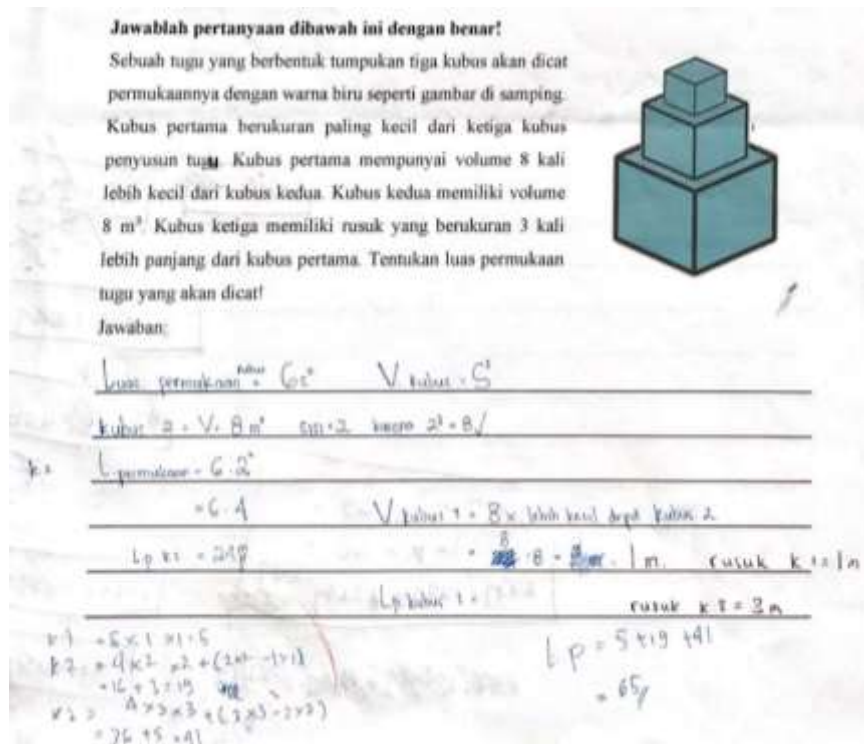 Jawablah pertanyaan dibawah ini dengan benar!
Sebuah tugu yang berbentuk tumpukan tiga kubus akan dicat
permukaannya dengan warna biru seperti gambar di samping.
Kubus pertama berukuran paling kecil dari ketiga kubus
penyusun tugu. Kubus pertama mempunyai volume 8 kali
lebih kecil dari kubus kedua. Kubus kedua memiliki volume
8 m³. Kubus ketiga memiliki rusuk yang berukuran 3 kali
lebih panjang dari kubus pertama. Tentukan luas permukaan
tugu yang akan dicat!
Jawaban:
Luas permukaan kubus = 6s² V kubus = S³
kubus 2 = V = 8 m³ 2³ = 8
L permukaan = 6 · 2²
= 6 · 4 V kubus 1 = 8 x lebih kecil dari kubus 2
Lp k2 = 8 · 8 = 1 m. rusuk k 1 = 1 m
Lp kubus 1 = rusuk k 3 = 3 m
k1 = 5 x 1 x 1 = 5
k2 = 4 x 2 x 2 + (2x2 - 1x1) Lp = 5 + 19 + 41
= 16 + 3 = 19 = 65
k3 = 4 x 3 x 3 + (3 x 3 - 2 x 2)
= 36 + 5 = 41